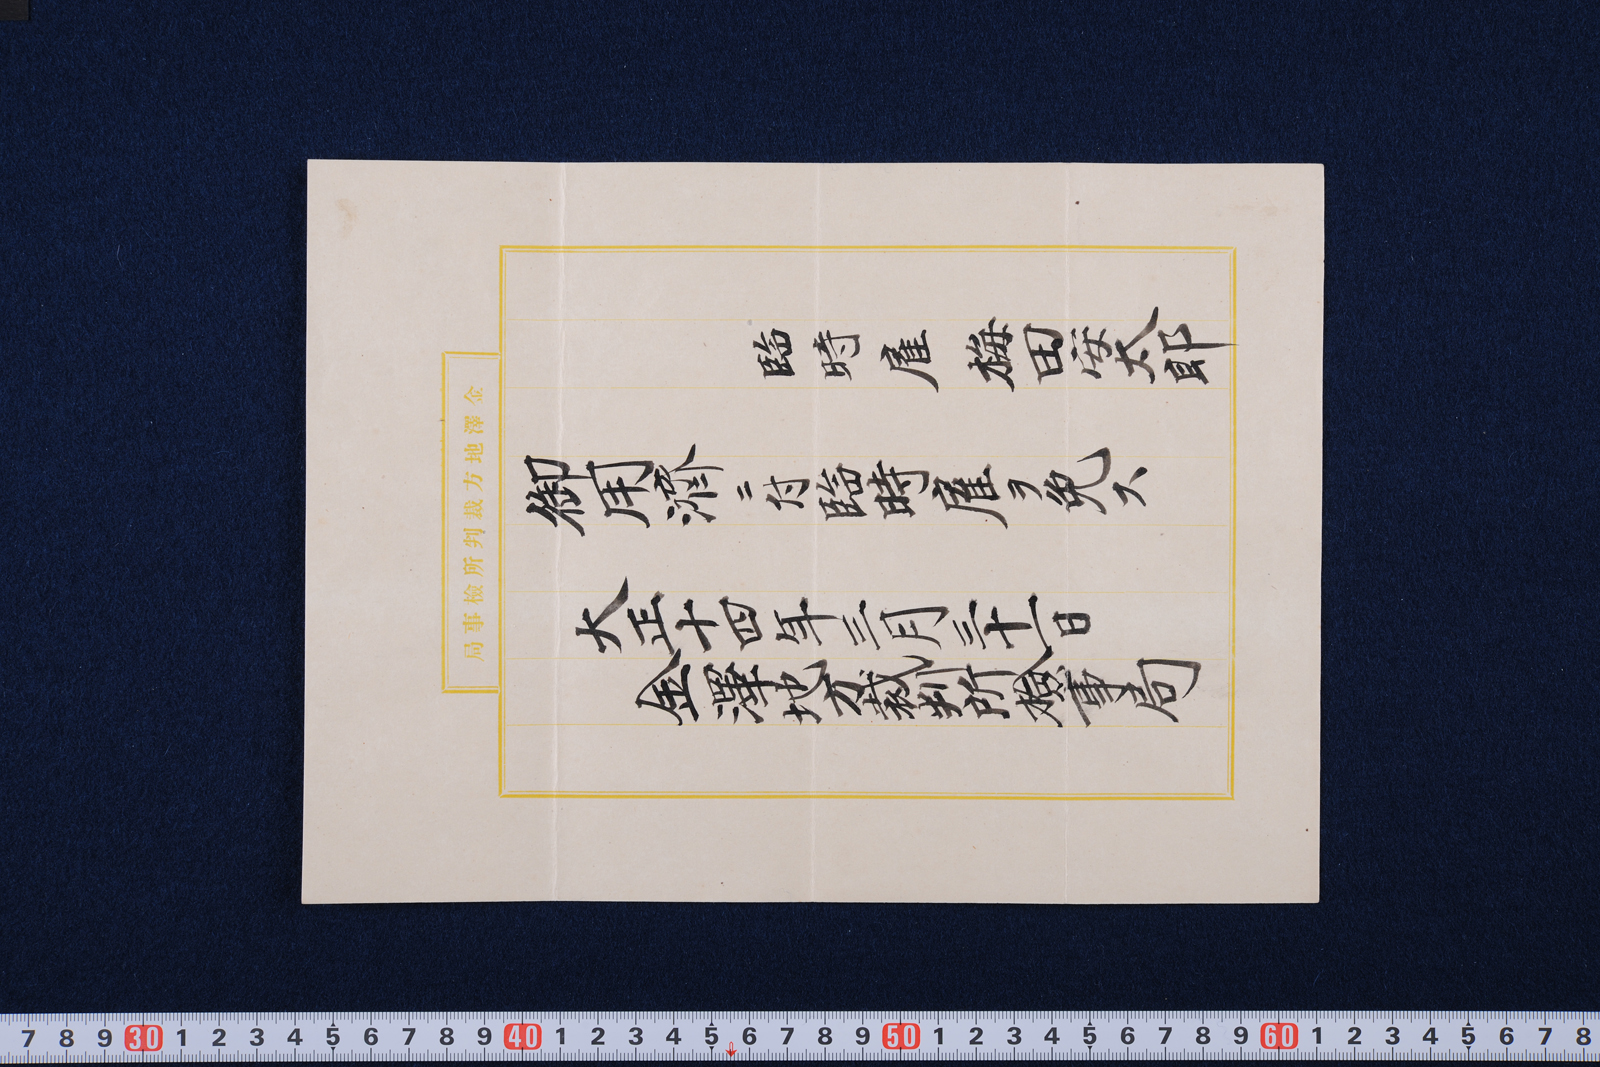 臨時雇 梅田安太郎
御用済ニ付臨時雇ヲ免ス
大正十四年三月三十一日
金澤地方裁判所檢事局
金澤地方裁判所檢事局
7 8 9 30 1 2 3 4 5 6 7 8 9 40 1 2 3 4 5 6 7 8 9 50 1 2 3 4 5 6 7 8 9 60 1 2 3 4 5 6 7 8